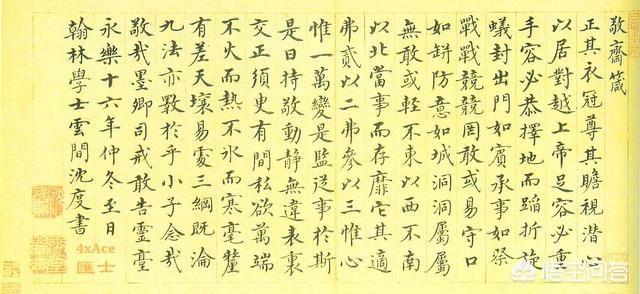 敬齋箴
正其衣冠尊其瞻視潛心
以居對越上帝足容必重
手容必恭擇地而蹈折旋
蟻封出門如賓承事如祭
戰戰兢兢罔敢或易守口
如缾防意如城洞洞屬屬
無敢或輕不東以西不南
以北當事而存靡它其適
弗貳以二弗參以三惟心
惟一萬變是監從事於斯
是曰持敬動靜無違表裏
交正須臾有間私欲萬端
不火而熱不冰而寒毫釐
有差天壤易處三綱既淪
九法亦斁於乎小子念哉
敬哉墨卿司戒敢告靈臺
永樂十六年仲冬至日
翰林學士雲間沈度書
4xAce
匯士
悟空问答